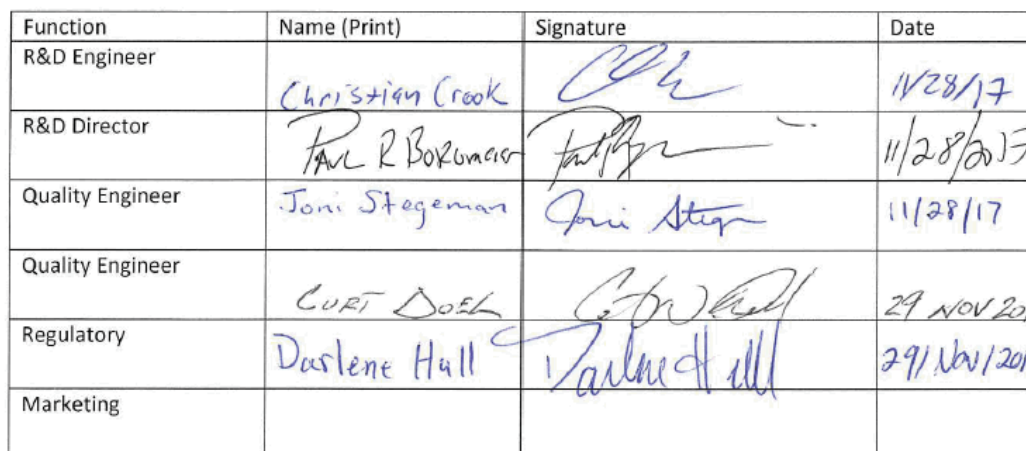 Function Name (Print) Signature Date
R&D Engineer
Christian Crook 11/28/17
R&D Director
Paul R 11/28/2017
Quality Engineer Joni Stegeman Joni 11/28/17
Quality Engineer
CURT DOEL 29 NOV 201
Regulatory
Darlene Hull Darlene Hull 29/Nov/201
Marketing